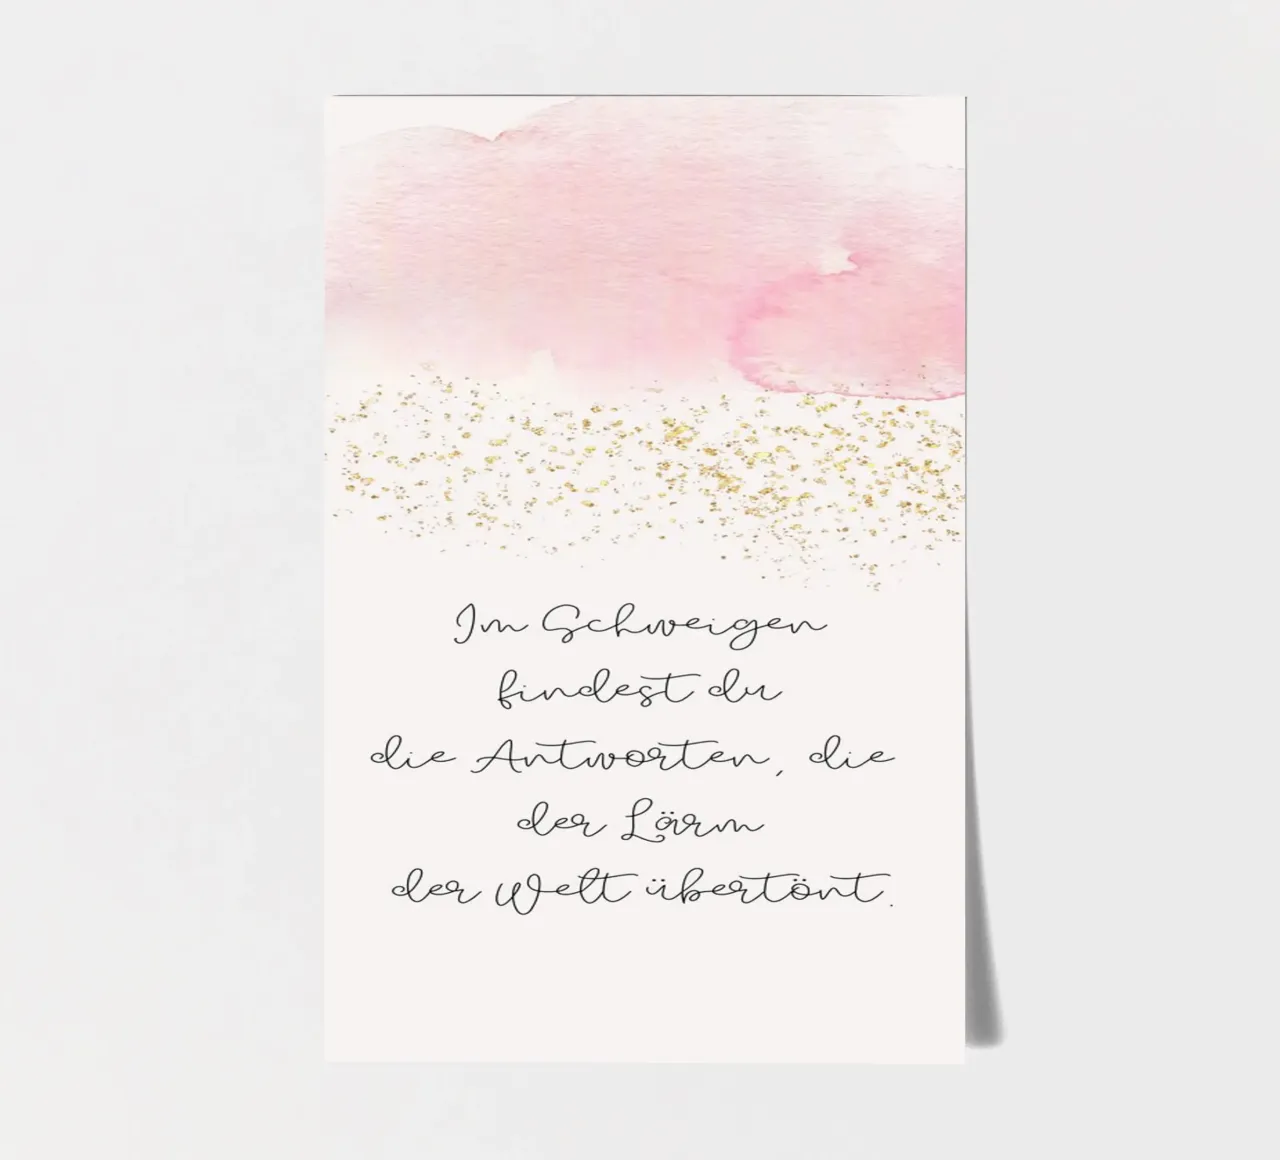 Im Schweigen
findest du
die Antworten, die
der Lärm
der Welt übertönt.